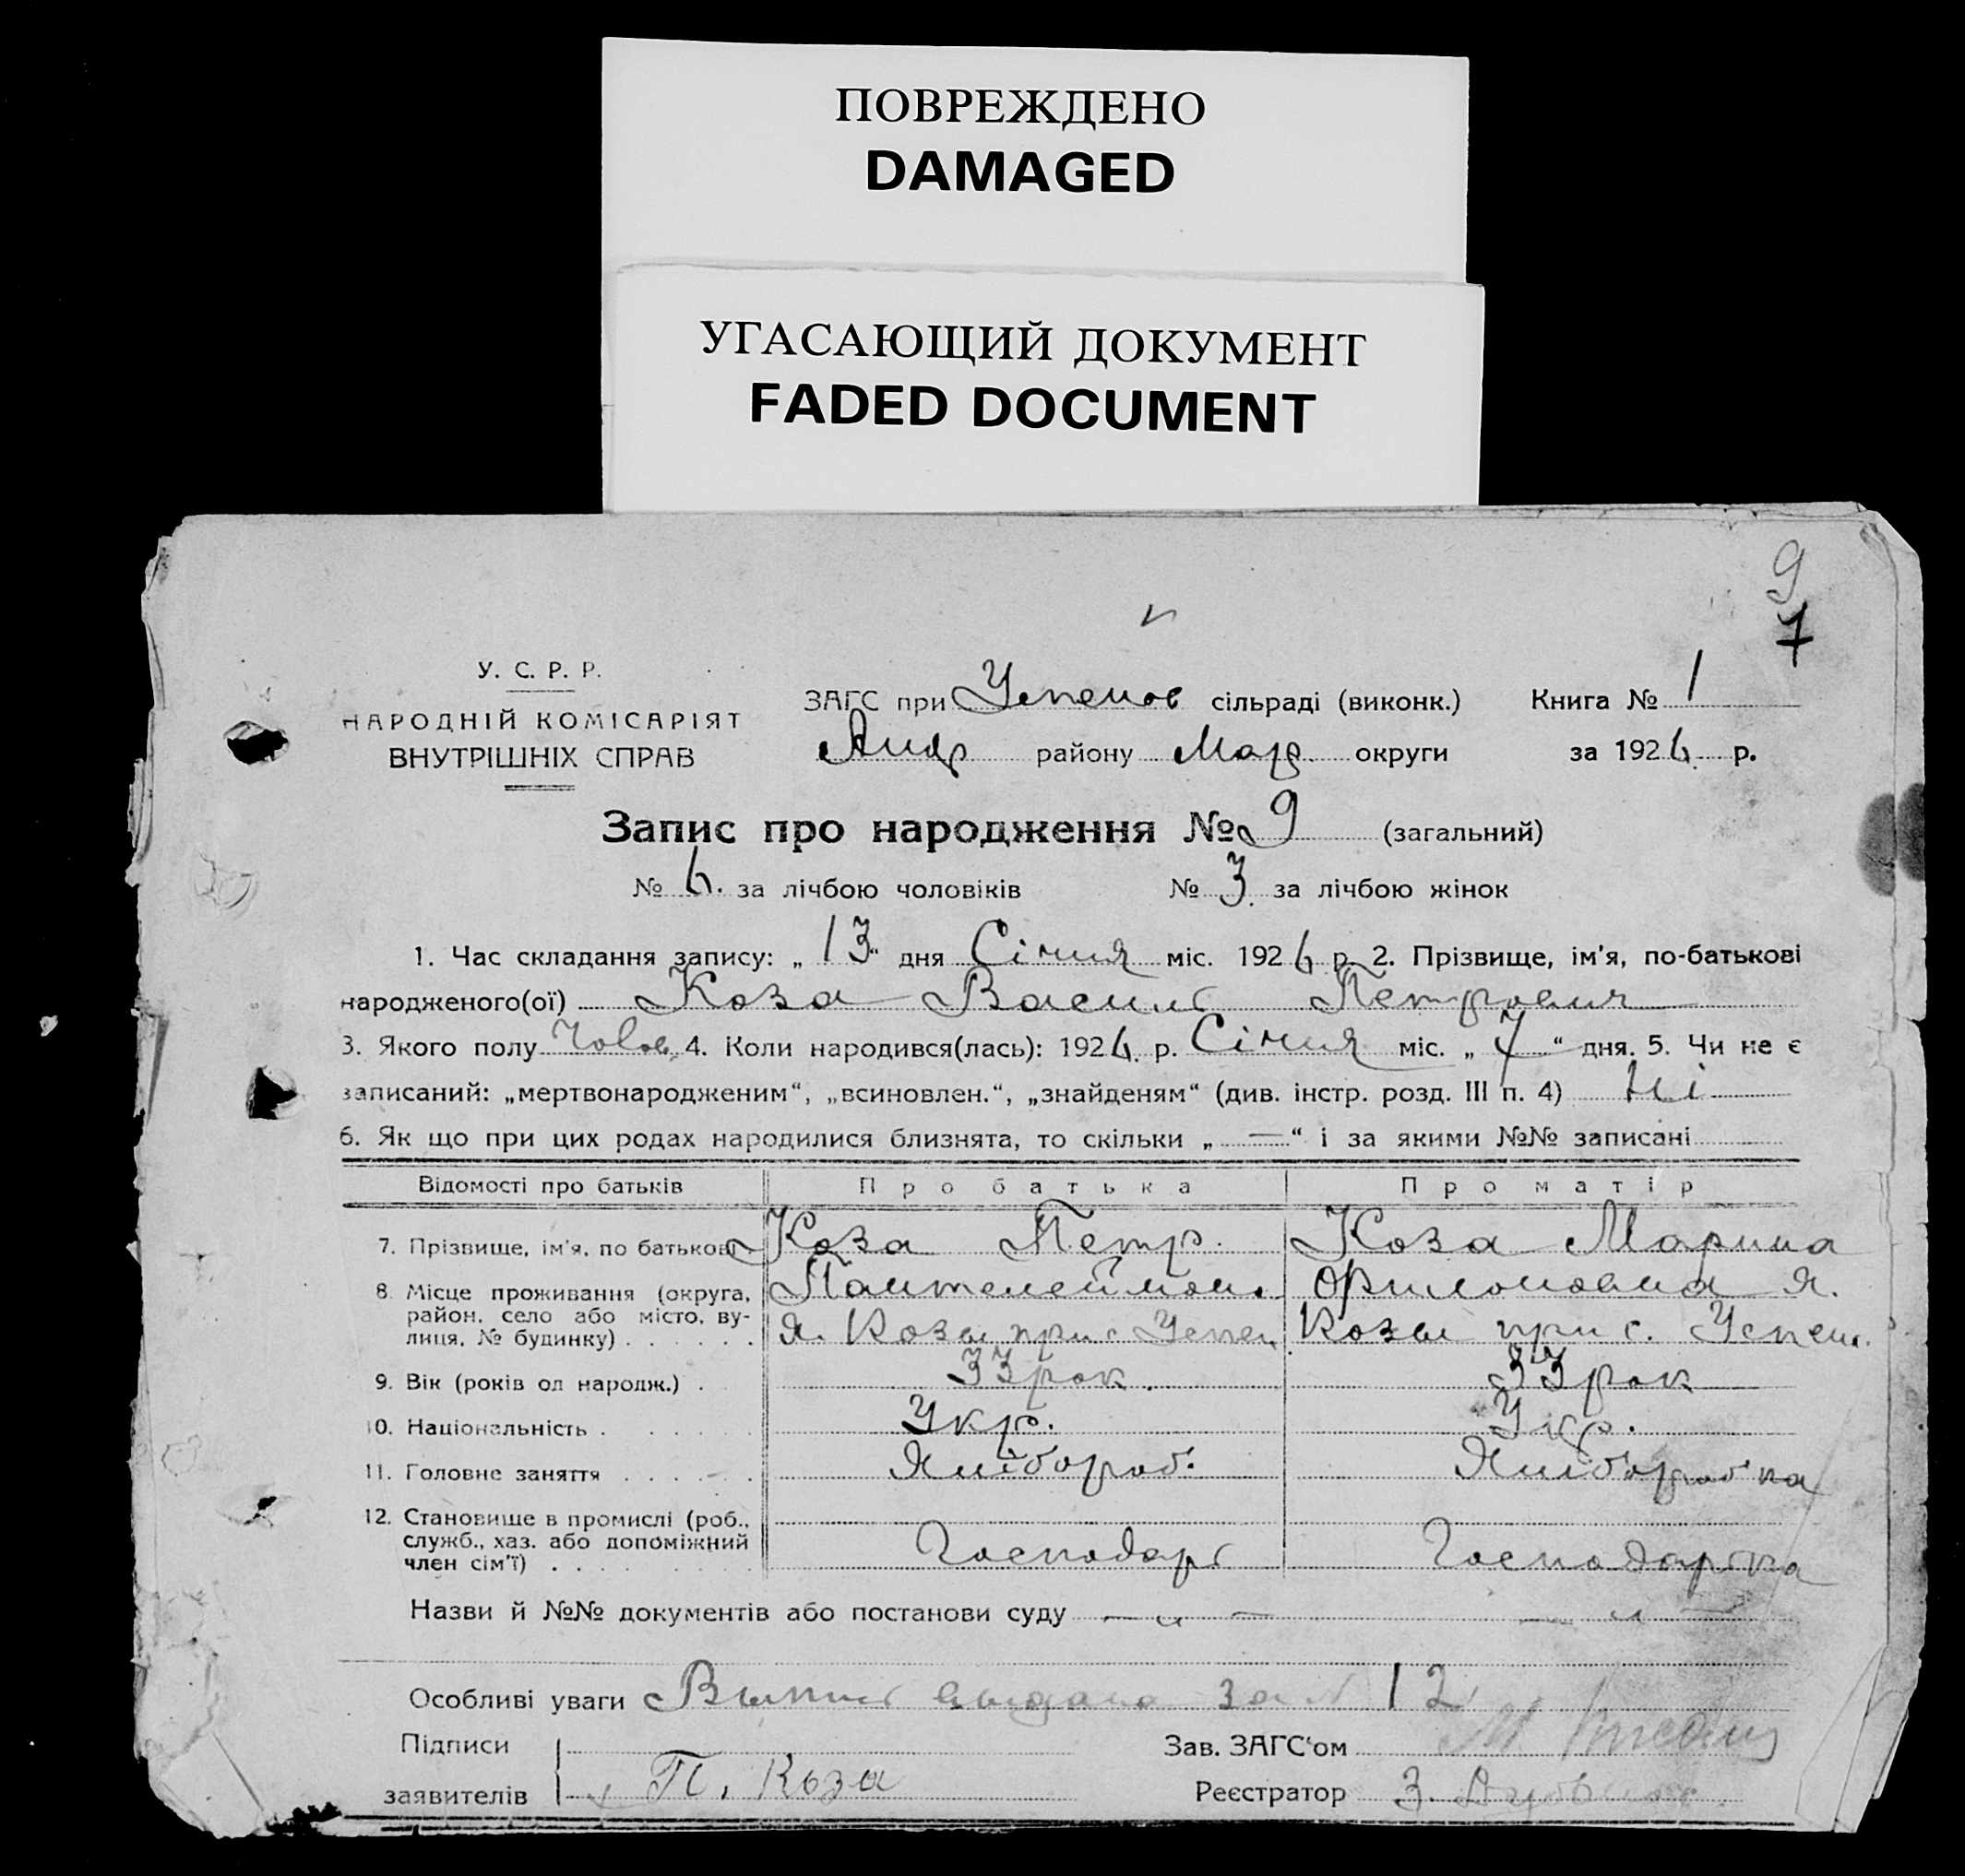 ПОВРЕЖДЕНО
DAMAGED
УГАСАЮЩИЙ ДОКУМЕНТ
FADED DOCUMENT
9
7
У. С. Р. Р.
НАРОДНІЙ КОМІСАРІЯТ
ВНУТРІШНІХ СПРАВ
ЗАГС при Успенов сільраді (виконк.) Книга № 1
району Мар. округи за 1926 р.
Запис про народження № 9 (загальний)
№ 6. за лічбою чоловіків № 3. за лічбою жінок
1. Час складання запису: „ 13 “ дня Січня міс. 1926 р. 2. Прізвище, ім'я, по-батькові
народженого(ої) Коза Василь Петрович
3. Якого полу Чолов. 4. Коли народився(лась): 1926 р. Січня міс. „ 7 “ дня. 5. Чи не є
записаний: „мертвонародженим“, „всиновлен.“, „знайденям“ (див. інстр. розд. III п. 4) Ні
6. Як що при цих родах народилися близнята, то скільки „ — “ і за якими №№ записані
Відомості про батьків Про батька Про матір
7. Прізвище, ім'я, по батькові Коза Петр. Коза Марина
8. Місце проживання (округа, Пантелеймон. Филоновна х.
район, село або місто, ву-
лиця, № будинку) . . . . . . х. Козы при с Успен Козы при с. Успен.
9. Вік (років од народж.) . 33 рок. 33 рок
10. Національність . . . . . . Укр. Укр.
11. Головне заняття . . . . . . Хлібороб. Хлібороб'ка
12. Становище в промислі (роб.,
служб., хаз. або допоміжний
член сім'ї) . . . . . . Господарь Господарька
Назви й №№ документів або постанови суду — „ — — „ —
Особливі уваги Выпись выдана за № 12
Підписи Зав. ЗАГС‘ом
заявителів П. Коза Реєстратор З.